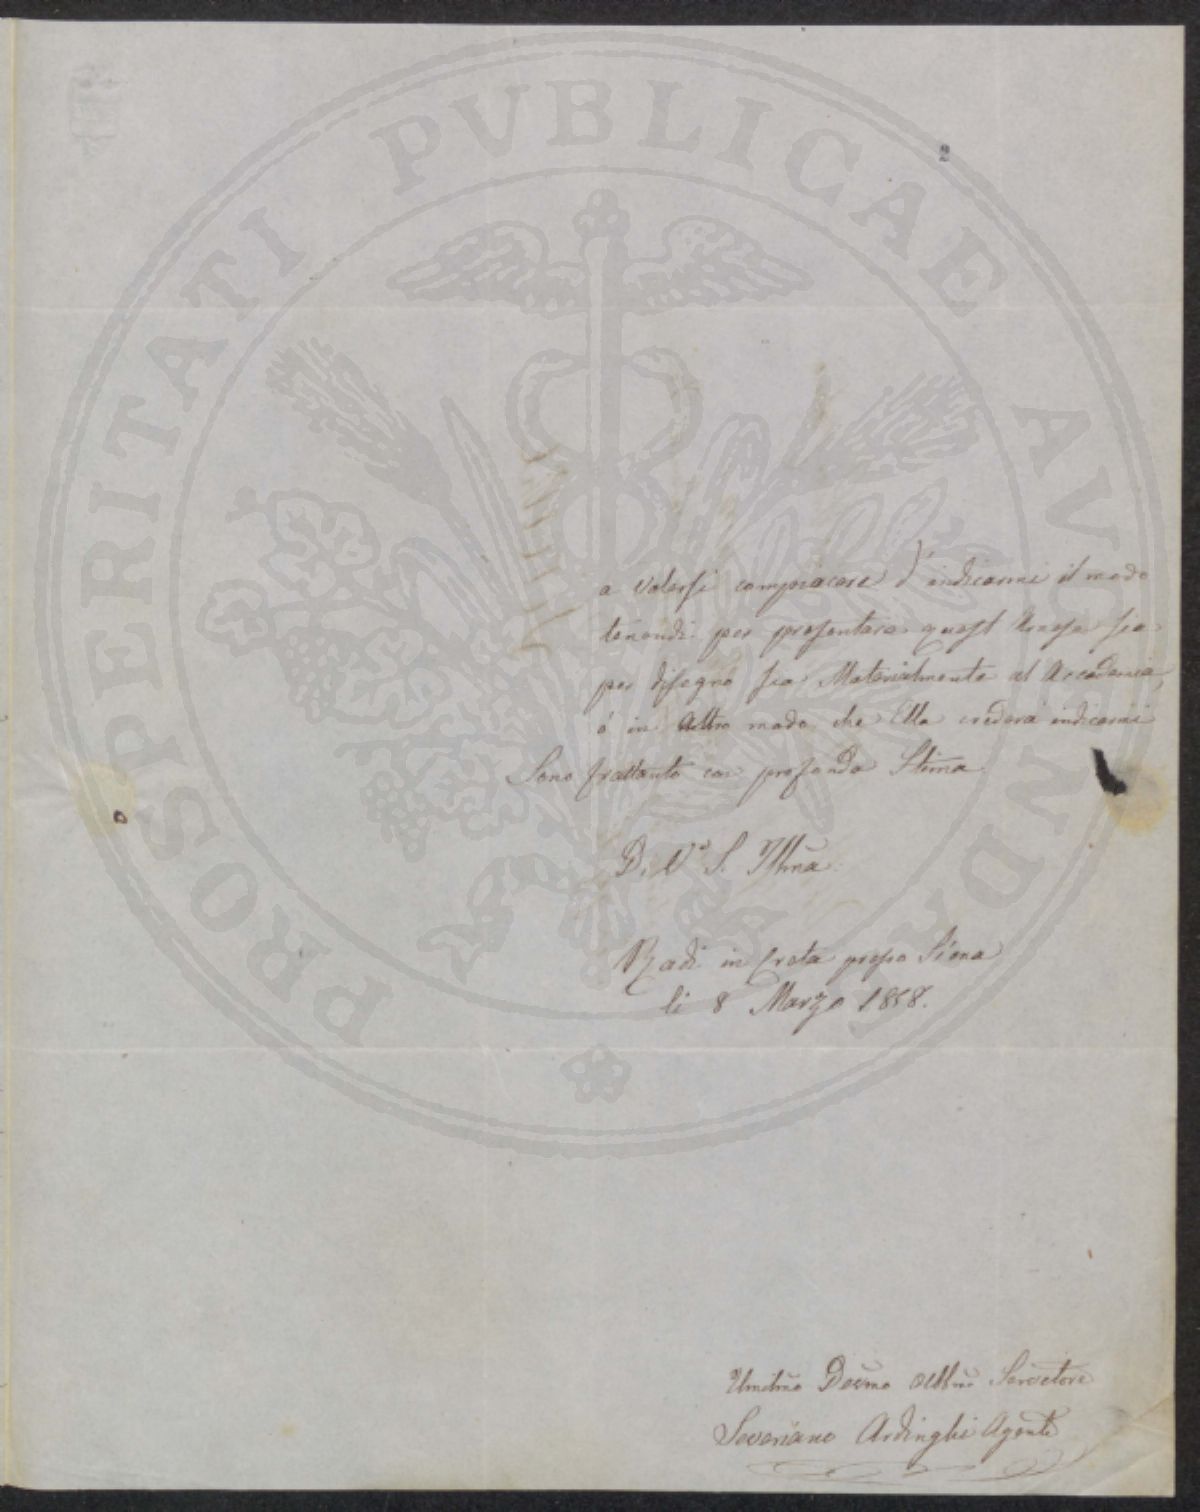 PROSPERITATI PVBLICAE AVGENDAE
2
a Volersi compiacere d'indicarmi il modo
tenendi per presentare quest Arnese sia
per disegno sia Materialmente al Accademia,
ó in Altro modo che Ella crederá indicarmi
Sono frattanto con profonda Stima
D. Va S. Illma
Radi in Creta presso Siena
li 8 Marzo 1858.
Umilmo Devmo Obbmo Servitore
Severiano Ardinghi Agente